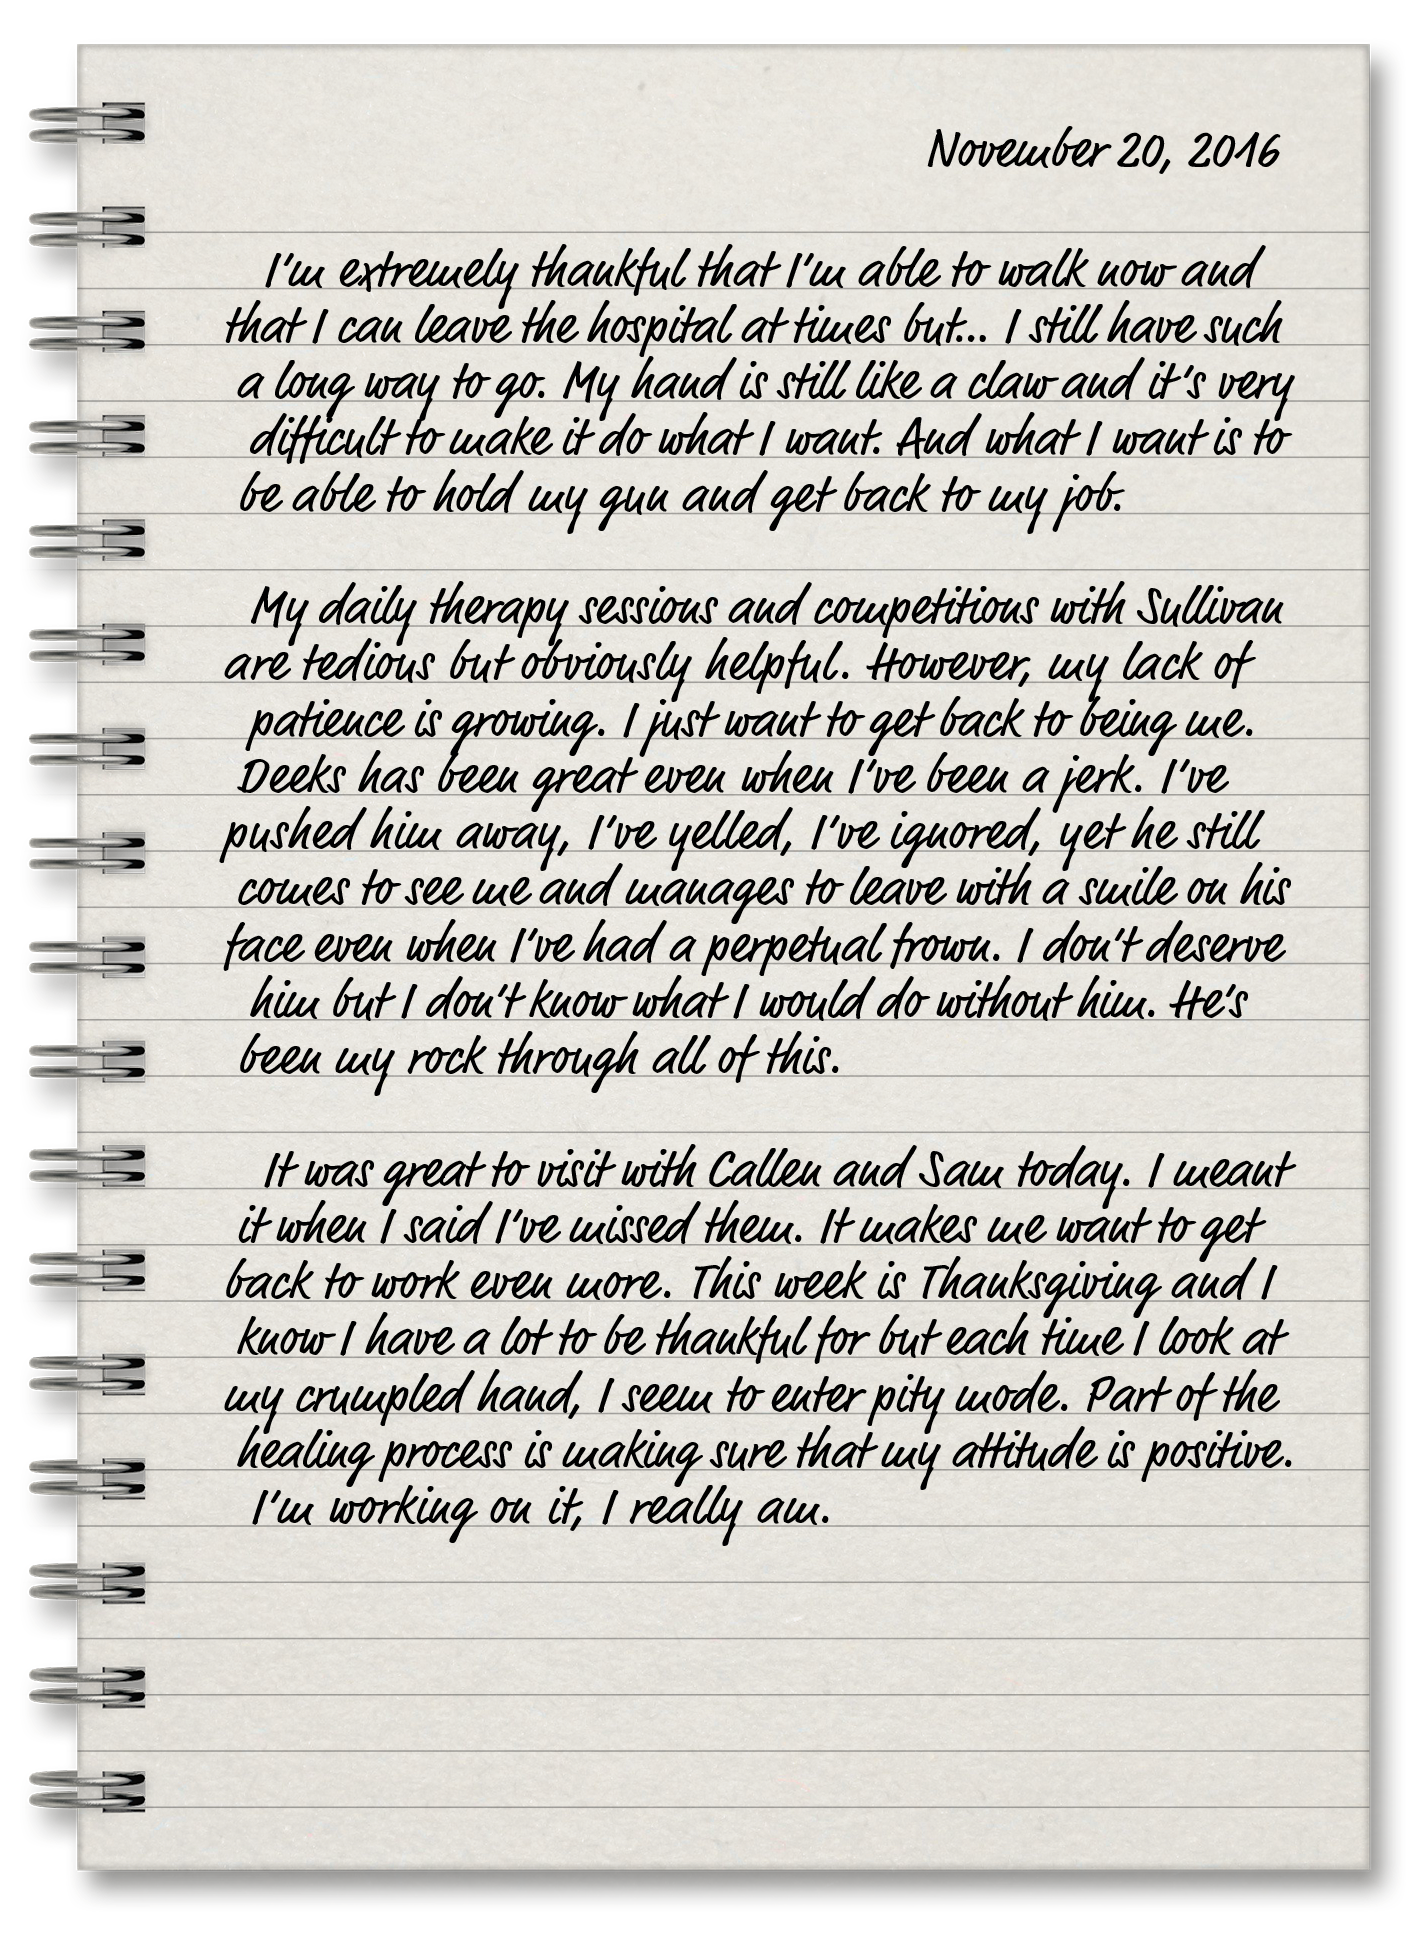 November 20, 2016
I'm extremely thankful that I'm able to walk now and
that I can leave the hospital at times but... I still have such
a long way to go. My hand is still like a claw and it's very
difficult to make it do what I want. And what I want is to
be able to hold my gun and get back to my job.
My daily therapy sessions and competitions with Sullivan
are tedious but obviously helpful. However, my lack of
patience is growing. I just want to get back to being me.
Deeks has been great even when I've been a jerk. I've
pushed him away, I've yelled, I've ignored, yet he still
comes to see me and manages to leave with a smile on his
face even when I've had a perpetual frown. I don't deserve
him but I don't know what I would do without him. He's
been my rock through all of this.
It was great to visit with Callen and Sam today. I meant
it when I said I've missed them. It makes me want to get
back to work even more. This week is Thanksgiving and I
know I have a lot to be thankful for but each time I look at
my crumpled hand, I seem to enter pity mode. Part of the
healing process is making sure that my attitude is positive.
I'm working on it, I really am.